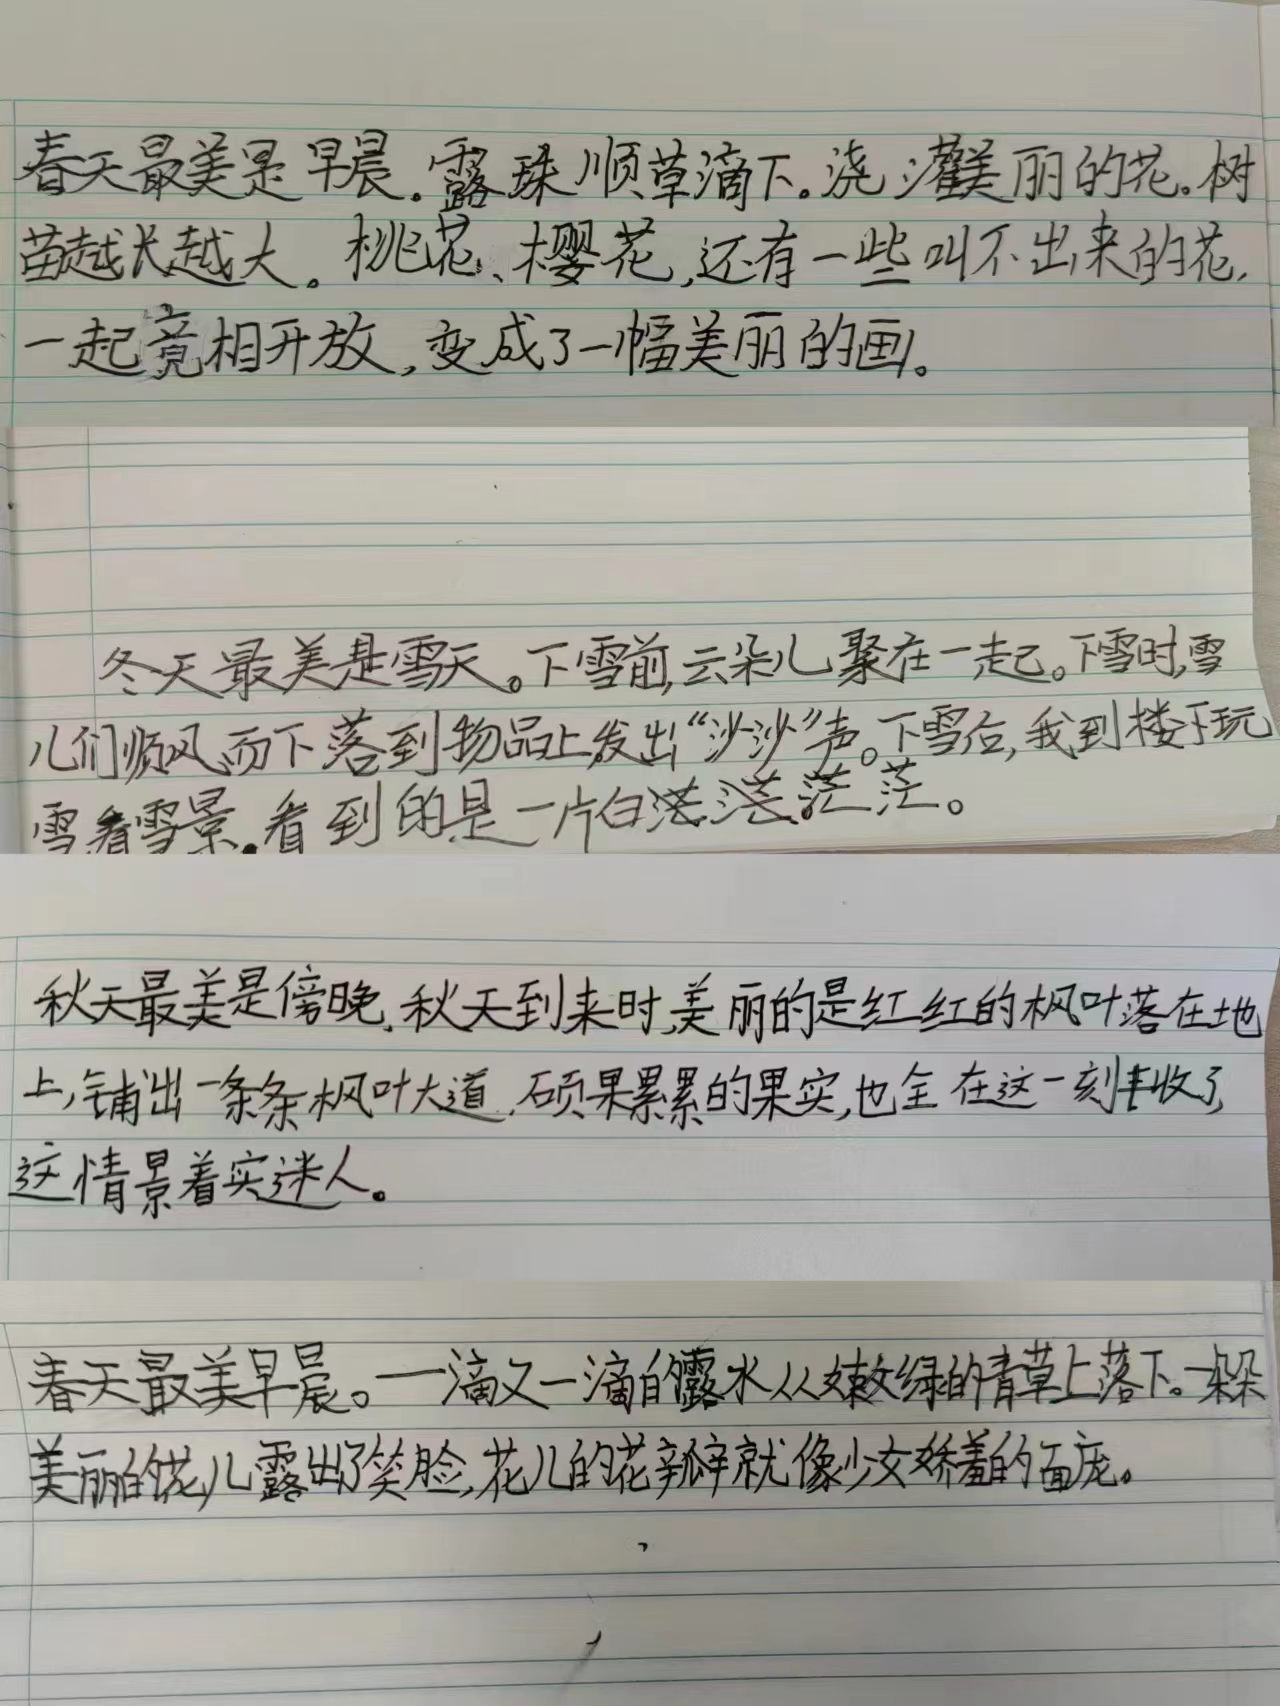 春天最美是早晨。露珠顺草滴下。浇灌美丽的花。树
苗越长越大。桃花、樱花,还有一些叫不出来的花,
一起竟相开放,变成了一幅美丽的画。
冬天最美是雪天。下雪前,云朵儿聚在一起。下雪时,雪
儿们顺风而下落到物品上发出“沙沙”声。下雪后,我到楼下玩
雪看雪景.看到的是一片白茫茫。
秋天最美是傍晚.秋天到来时,美丽的是红红的枫叶落在地
上,铺出一条条枫叶大道.硕果累累的果实,也全在这一刻丰收了,
这情景着实迷人。
春天最美早晨。一滴又一滴的露水从嫩绿的青草上落下。一朵朵
美丽的花儿露出了笑脸,花儿的花瓣就像少女娇羞的面庞。